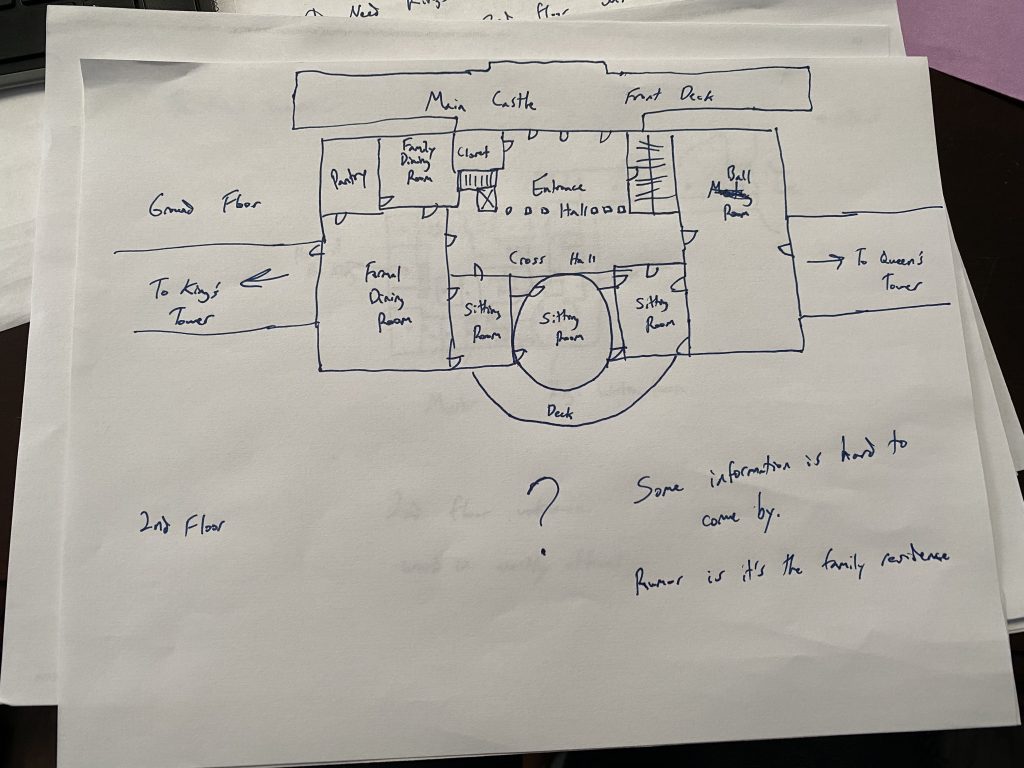 Need
2nd floor
Main Castle Front Deck
Ground Floor
Pantry
Family
Dining
Room
Closet
Entrance
Hall
Ball
Room
To King's
Tower
Formal
Dining
Room
Cross Hall
Sitting
Room
Sitting
Room
Sitting
Room
To Queen's
Tower
Deck
2nd Floor
?
Some information is hard to
come by.
Rumor is it's the family residence